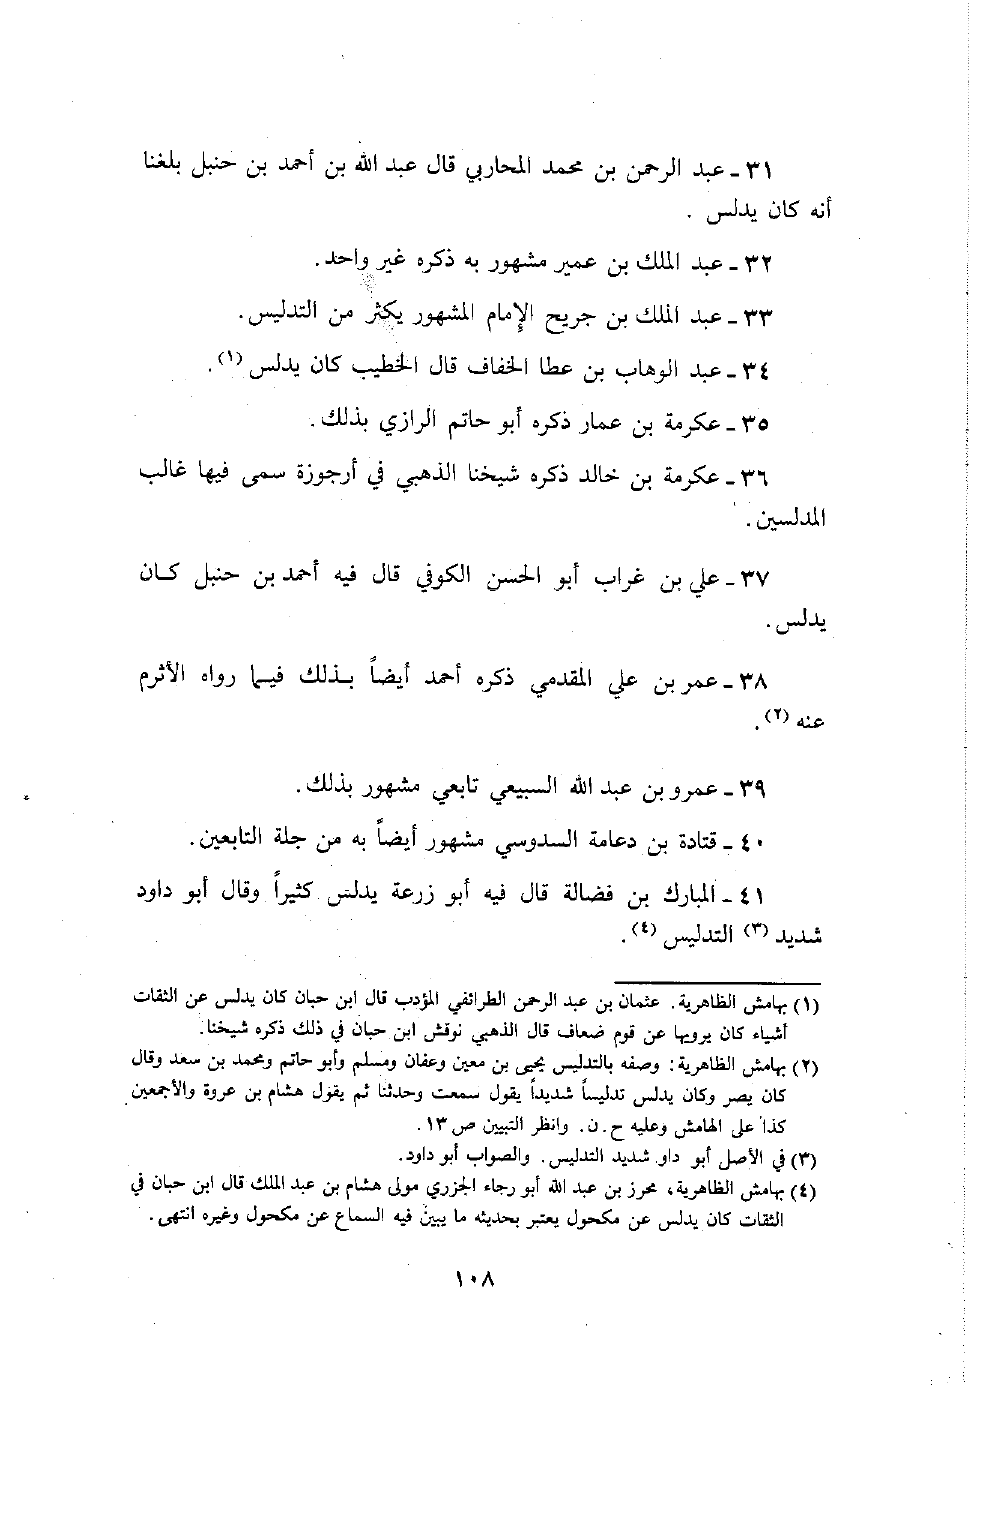 ٣١ ـ عبد الرحمن بن محمد المحاربي قال عبد الله بن أحمد بن حنبل بلغنا
أنه كان يدلس .
٣٢ ـ عبد الملك بن عمير مشهور به ذكره غير واحد.
٣٣ ـ عبد الملك بن جريح الإمام المشهور يكثر من التدليس.
٣٤ ـ عبد الوهاب بن عطا الخفاف قال الخطيب كان يدلس (١).
٣٥ ـ عكرمة بن عمار ذكره أبو حاتم الرازي بذلك.
٣٦ ـ عكرمة بن خالد ذكره شيخنا الذهبي في أرجوزة سمى فيها غالب
المدلسين.
٣٧ ـ علي بن غراب أبو الحسن الكوفي قال فيه أحمد بن حنبل كان
يدلس.
٣٨ ـ عمر بن علي المقدمي ذكره أحمد أيضاً بذلك فيما رواه الأثرم
عنه (٢).
٣٩ ـ عمرو بن عبد الله السبيعي تابعي مشهور بذلك.
٤٠ ـ قتادة بن دعامة السدوسي مشهور أيضاً به من جلة التابعين.
٤١ ـ المبارك بن فضالة قال فيه أبو زرعة يدلس كثيراً وقال أبو داود
شديد (٣) التدليس (٤).
(١) بهامش الظاهرية. عثمان بن عبد الرحمن الطرائفي المؤدب قال ابن حبان كان يدلس عن الثقات
أشياء كان يرويها عن قوم ضعاف قال الذهبي نوقش ابن حبان في ذلك ذكره شيخنا.
(٢) بهامش الظاهرية: وصفه بالتدليس يحيى بن معين وعفان ومسلم وأبو حاتم ومحمد بن سعد وقال
كان يصر وكان يدلس تدليساً شديداً يقول سمعت وحدثنا ثم يقول هشام بن عروة والأجمعين
كذا على الهامش وعليه ح.ن. وانظر التبيين ص ١٣.
(٣) في الأصل أبو داو شديد التدليس. والصواب أبو داود.
(٤) بهامش الظاهرية، محرز بن عبد الله أبو رجاء الجزري مولى هشام بن عبد الملك قال ابن حبان في
الثقات كان يدلس عن مكحول يعتبر بحديثه ما يبين فيه السماع عن مكحول وغيره انتهى.
١٠٨